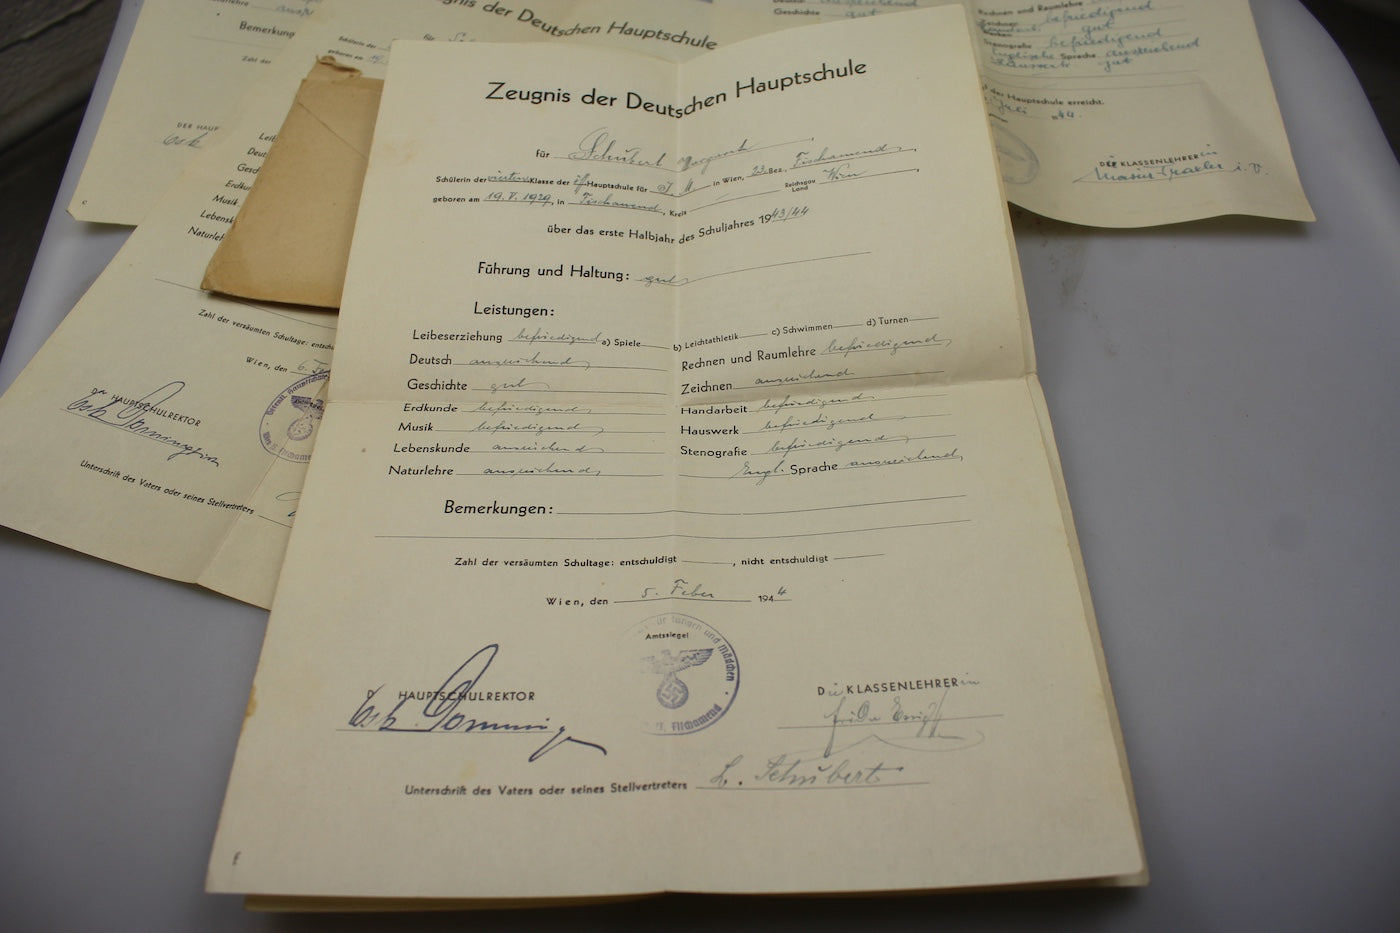 Zeugnis der Deutschen Hauptschule
Für Schubert Margarete
Schülerin der vierten Klasse der öff. Hauptschule für J. u. M. in Wien, 23. Bez., Fischamend,
geboren am 19. V. 1929, in Fischamend, Kreis Reichsgau Land Wien
über das erste Halbjahr des Schuljahres 1943/44
Führung und Haltung: gut
Leistungen:
Leibeserziehung befriedigend a) Spiele b) Leichtathletik c) Schwimmen d) Turnen
Deutsch ausreichend Rechnen und Raumlehre befriedigend
Geschichte gut Zeichnen ausreichend
Erdkunde befriedigend Handarbeit befriedigend
Musik befriedigend Hauswerk befriedigend
Lebenskunde ausreichend Stenografie befriedigend
Naturlehre ausreichend, Engl. Sprache ausreichend,
Bemerkungen:
Zahl der versäumten Schultage: entschuldigt , nicht entschuldigt
Wien, den 5. Feber 1944
für Jungen und Mädchen
Amtssiegel
Fischamend
HAUPTSCHULREKTOR
Die KLASSENLEHRERin
Unterschrift des Vaters oder seines Stellvertreters L. Schubert
Zeugnis der Deutschen Hauptschule
Schülerin der
geboren am
Bemerkung
Zahl der
DER HAUP
Leib
Deut
Gesch
Erdku
Musik
Lebensk
Naturleh
Zahl der versäumten Schultage: entsch
Wien, den 6.
HAUPTSCHULREKTOR
Unterschrift des Vaters oder seines Stellvertreters
Geschichte gut
Rechnen und Raumlehre befriedigend
Zeichnen befriedigend
gut
Stenografie befriedigend
Englische Sprache ausreichend
Hauswerk gut
der Hauptschule erreicht.
Juli 44.
Die KLASSENLEHRERin
i. V.